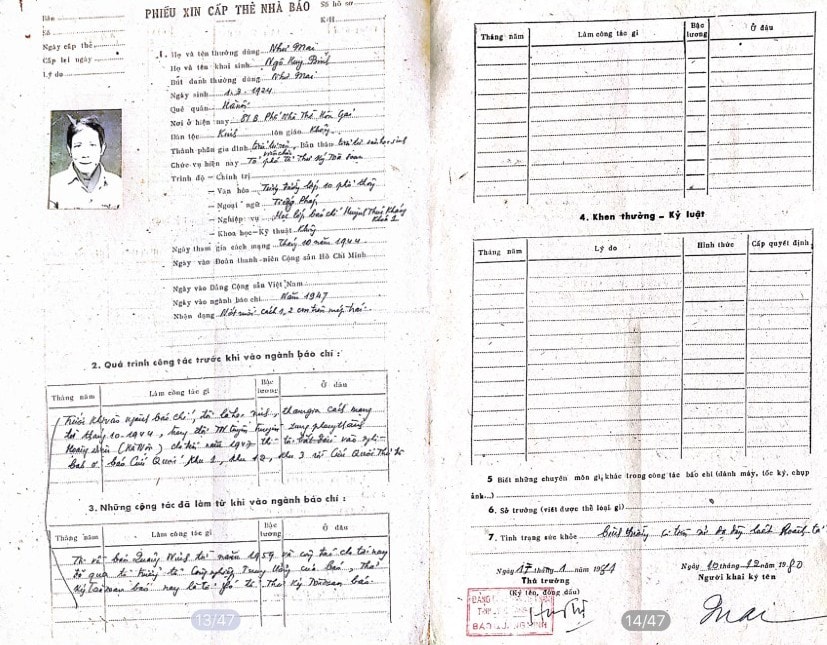 Báo
Số
Ngày cấp thẻ
Cấp lại ngày
Lý do
PHIẾU XIN CẤP THẺ NHÀ BÁO
Số hồ sơ
K-H
1. Họ và tên thường dùng Như Mai
Họ và tên khai sinh Ngô Huy Bỉnh
Bút danh thường dùng Như Mai
Ngày sinh 1.3.1924
Quê quán Hà Nội
Nơi ở hiện nay 87B Phố Nhà Thờ Hòn Gai
Dân tộc Kinh tôn giáo Không
Thành phần gia đình Bản thân học sinh
Chức vụ hiện nay Tổ phó tổ Thư Ký Tòa soạn
Trình độ – Chính trị
– Văn hóa lớp 10 phổ thông
– Ngoại ngữ Tiếng Pháp
– Nghiệp vụ Học lớp báo chí Huỳnh Thúc Kháng
Khóa 1
– Khoa học–Kỹ thuật Không
Ngày tham gia cách mạng Tháng 10 năm 1944
Ngày vào Đoàn thanh-niên Cộng sản Hồ Chí Minh
Ngày vào Đảng Cộng sản Việt Nam
Ngày vào ngành báo chí Năm 1947
Nhận dạng Nốt ruồi cách 1,2 cm trên mép trái
2. Quá trình công tác trước khi vào ngành báo chí :
Tháng năm Làm công tác gì Bậc lương Ở đâu
Trước khi vào ngành báo chí, tôi là học sinh, tham gia cách mạng
từ tháng 10-1944, trong đội TN tuyên truyền xung phong thành
Hoàng Diệu (Hà Nội) cho tới năm 1947 thì tôi bắt đầu vào nghề
báo ở báo Cứu Quốc Khu 1, Khu 12, Khu 3 rồi Cứu Quốc Thủ đô
3. Những công tác đã làm từ khi vào ngành báo chí :
Tháng năm Làm công tác gì Bậc lương Ở đâu
Tôi về báo Quảng Ninh từ năm 1959 và công tác cho tới nay
Đã qua tổ trưởng tổ Công nghiệp Trung Ương của báo, Thư
Ký Tòa soạn báo nay là tổ phó tổ Thư Ký Tòa soạn báo
13/47
Tháng năm Làm công tác gì Bậc lương Ở đâu
4. Khen thưởng – Kỷ luật
Tháng năm Lý do Hình thức Cấp quyết định
5 Biết những chuyên môn gì khác trong công tác báo chí (đánh máy, tốc ký, chụp
ảnh...)
6. Sở trường (viết được thể loại gì)
7. Tình trạng sức khỏe
Ngày 17 tháng 1 năm 1981
Thủ trưởng
(Ký tên, đóng dấu)
Ngày 10 tháng 12 năm 1980
Người khai ký tên
Mai
14/47